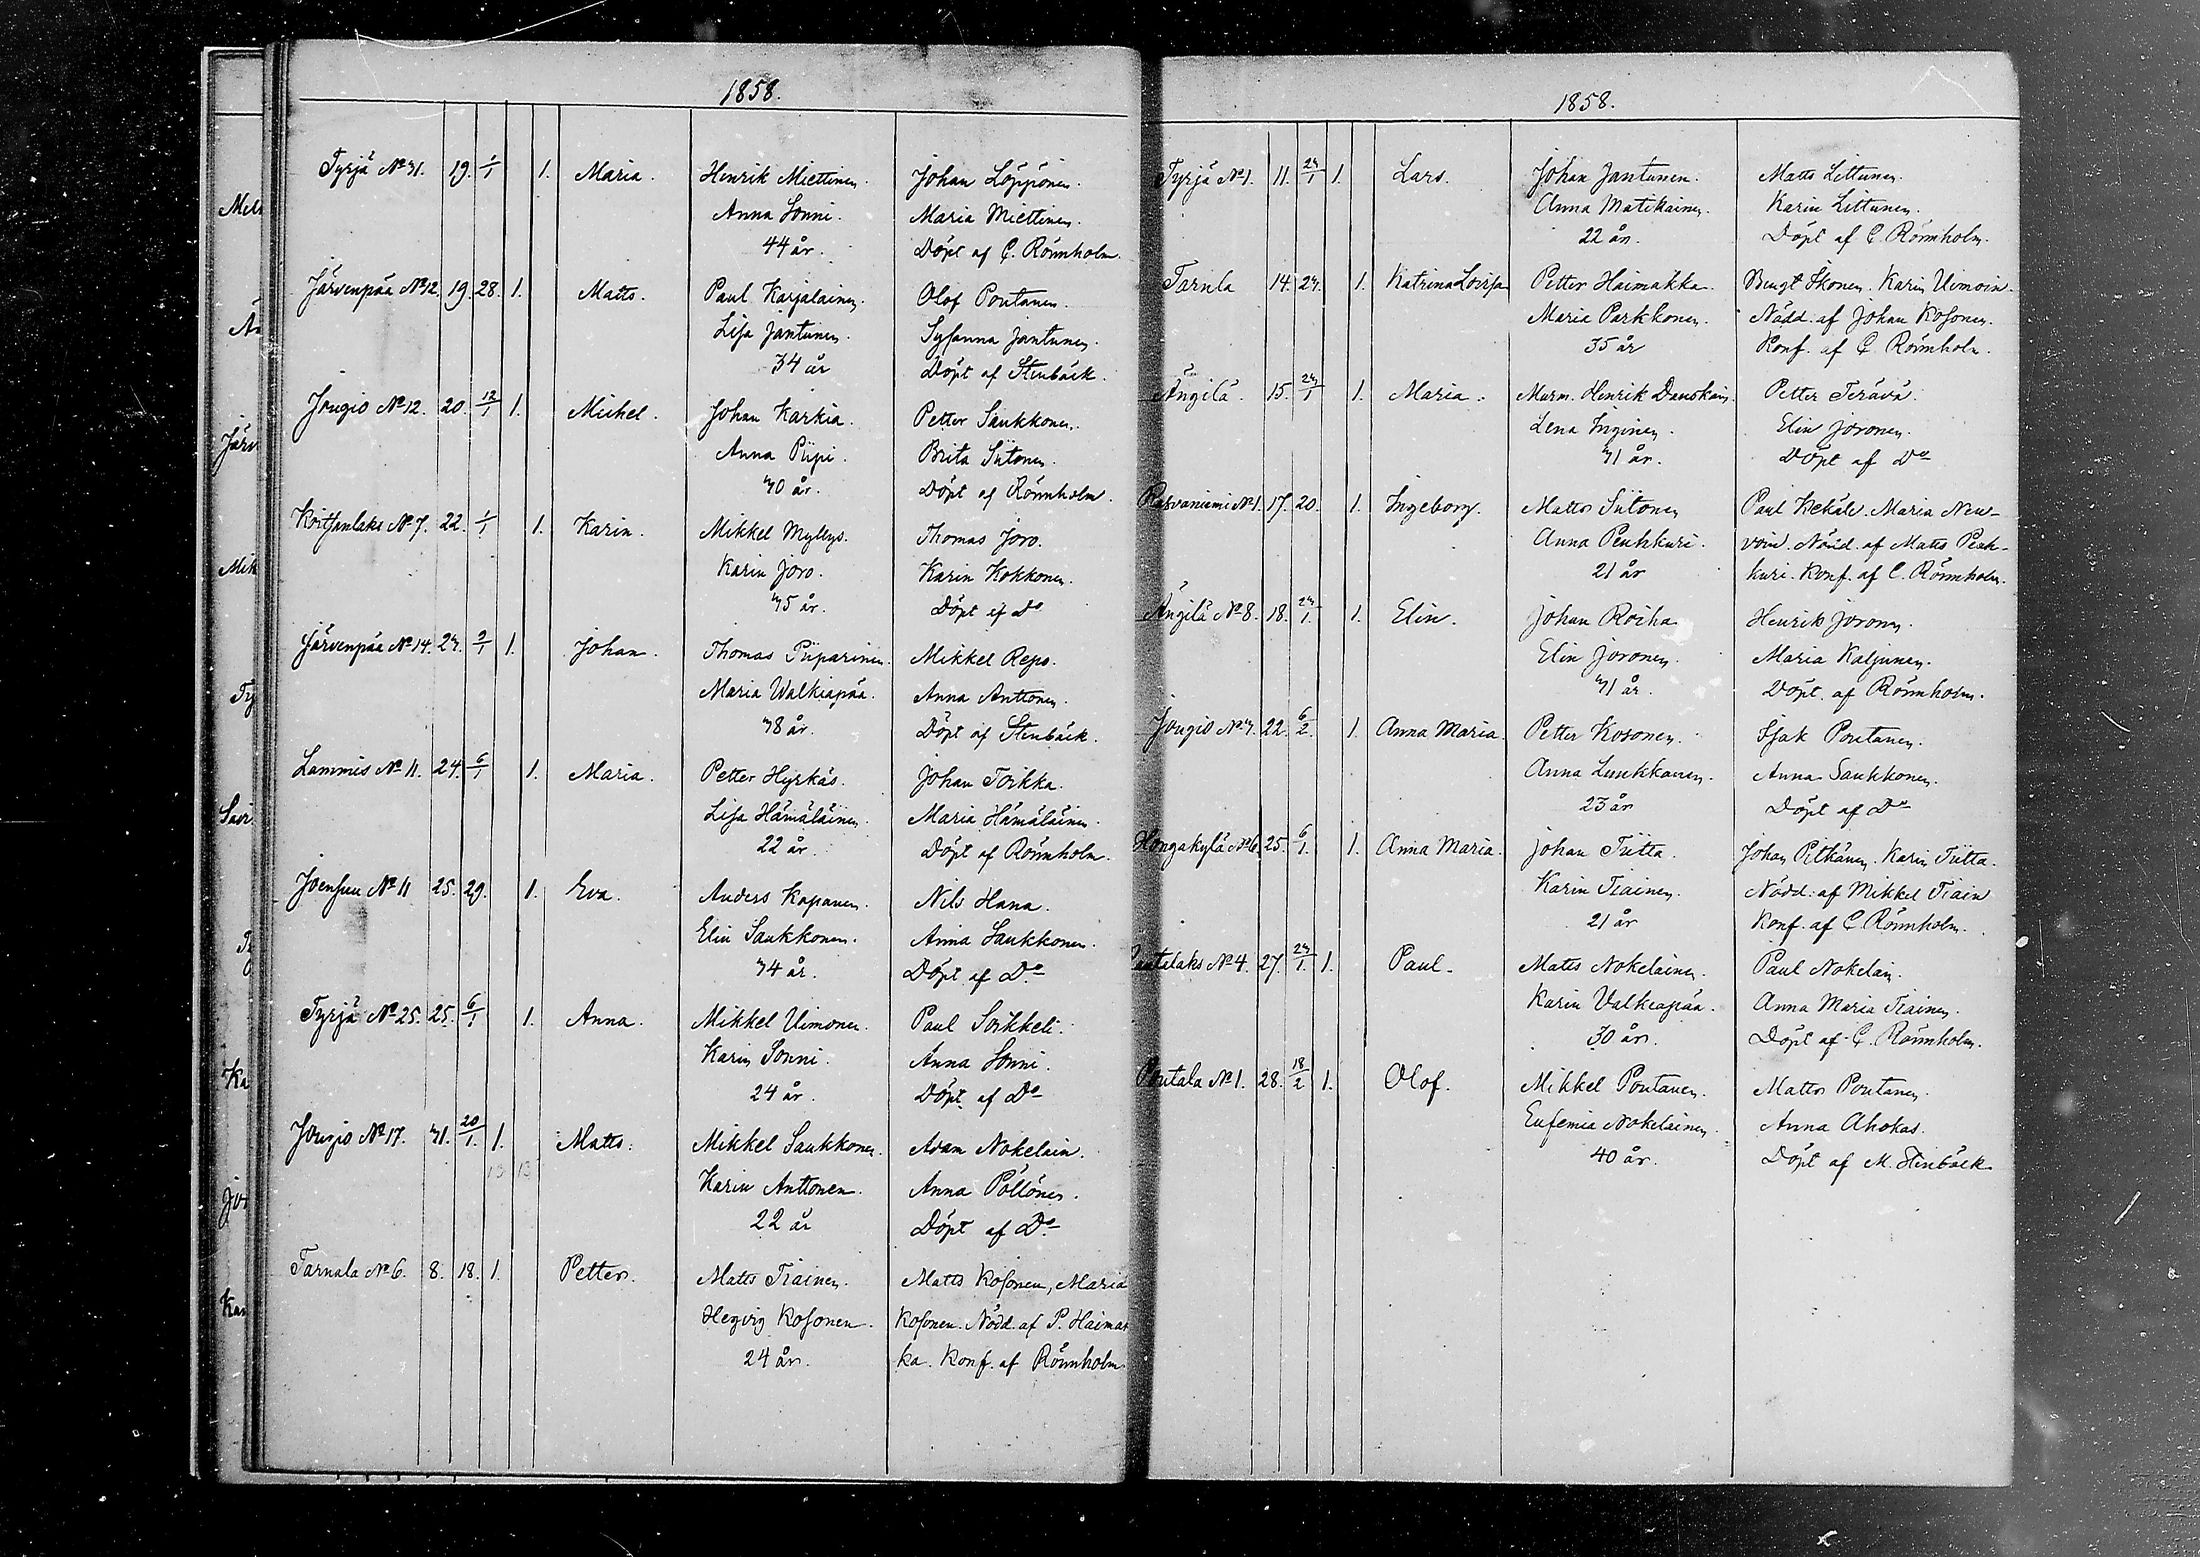 1858.
Tyrjä No 31. 19. 1/1 1. Maria. Henrik Miettinen. Johan Löppönen.
Anna Sonni. Maria Miettinen.
44 år. Döpt af C. Rönnholm
Järvenpää No 12. 19. 28. 1. Matts. Paul Karjalainen. Olof Poutanen.
Lisa Jantunen. Sysanna Jantunen.
34 år Döpt af Stenbäck.
Jougio No 12. 20. 12/1 1. Michel. Johan Karkia. Petter Saukkonen.
Anna Piipi. Brita Siitonen.
30 år. Döpt af Rönnholm.
Koitsanlaks No 7. 22. 1/1 1. Karin. Mikkel Myllys. Thomas Joro.
Karin Joro. Karin Kokkonen.
35 år. Döpt af Do
Järvenpää No 14. 23. 2/1 1. Johan. Thomas Piiparinen. Mikkel Repo.
Maria Walkiapää. Anna Anttonen.
38 år. Döpt af Stenbäck.
Lammis No 11. 24. 6/1 1. Maria. Petter Hyrkäs. Johan Toikka.
Lisa Hämäläinen. Maria Hämäläinen.
22 år. Döpt af Rönnholm.
Joensuu No 11 25. 29. 1. Eva. Anders Kapanen. Nils Hana.
Elin Saukkonen. Anna Saukkonen.
34 år. Döpt af Do
Tyrjä No 25. 25. 6/1 1. Anna. Mikkel Uimonen. Paul Soikkeli.
Karin Sonni. Anna Sonni.
24 år. Döpt af Do
Jougio No 17. 31. 20/1. 1. Matts. Mikkel Saukkonen. Adam Nokelain.
13 13
Karin Anttonen. Anna Pöllönen.
22 år Döpt af Do
Tarnala No 6. 8. 18. 1. Petter. Matts Tiainen. Matts Kosonen, Maria
Hegvig Kosonen. Kosonen. Nödd. af P. Haimak
24 år. ka. Konf. af Rönnholm
1858.
Tyrjä No 1. 11. 23/1 1. Lars. Johan Jantunen. Matts Littunen.
Anna Matikainen. Karin Littunen.
22 år. Döpt af C. Rönnholm.
Tarnla 14. 23. 1. Katrina Lovisa Petter Haimakka. Bengt Ikonen. Karin Uimoin.
Maria Parkkonen. Nödd. af Johan Kosonen.
35 år Konf. af C. Rönnholm.
Ängilä. 15. 23/1 1. Maria. Murm. Henrik Danskain. Petter Terävä.
Lena Inginen. Elin Joronen.
31 år. Döpt af Do
Rasvaniemi No 1. 17. 20. 1. Ingeborg. Matts Siitonen Paul Kekäle. Maria Neu-
Anna Peuhkuri. void. Nödd. af Matts Peuh-
21 år kuri. Konf. af C. Rönnholm.
Ängilä No 8. 18. 23/1. 1. Elin. Johan Roiha Henrik Joronen.
Elin Joronen. Maria Kaljunen.
31 år. Döpt. af Rönnholm.
Jougio No 3. 22. 6/2. 1. Anna Maria. Petter Kosonen. Isak Poutanen.
Anna Luukkanen. Anna Saukkonen.
23 år Döpt af Do
Hongakylä No 6. 25. 6/1. 1. Anna Maria. Johan Tiitta. Johan Pitkänen. Karin Tiitta.
Karin Tiainen. Nödd. af Mikkel Tiain
21 år Konf. af C. Rönnholm.
No 4. 27. 23/1. 1. Paul. Matts Nokelainen. Paul Nokelain.
Karin Valkiapää. Anna Maria Tiainen.
30 år. Döpt af C. Rönnholm.
Poutala No 1. 28. 18/2 1. Olof. Mikkel Poutanen. Matts Poutanen.
Eufemia Nokelainen. Anna Ahokas.
40 år. Döpt af M. Stenbäck